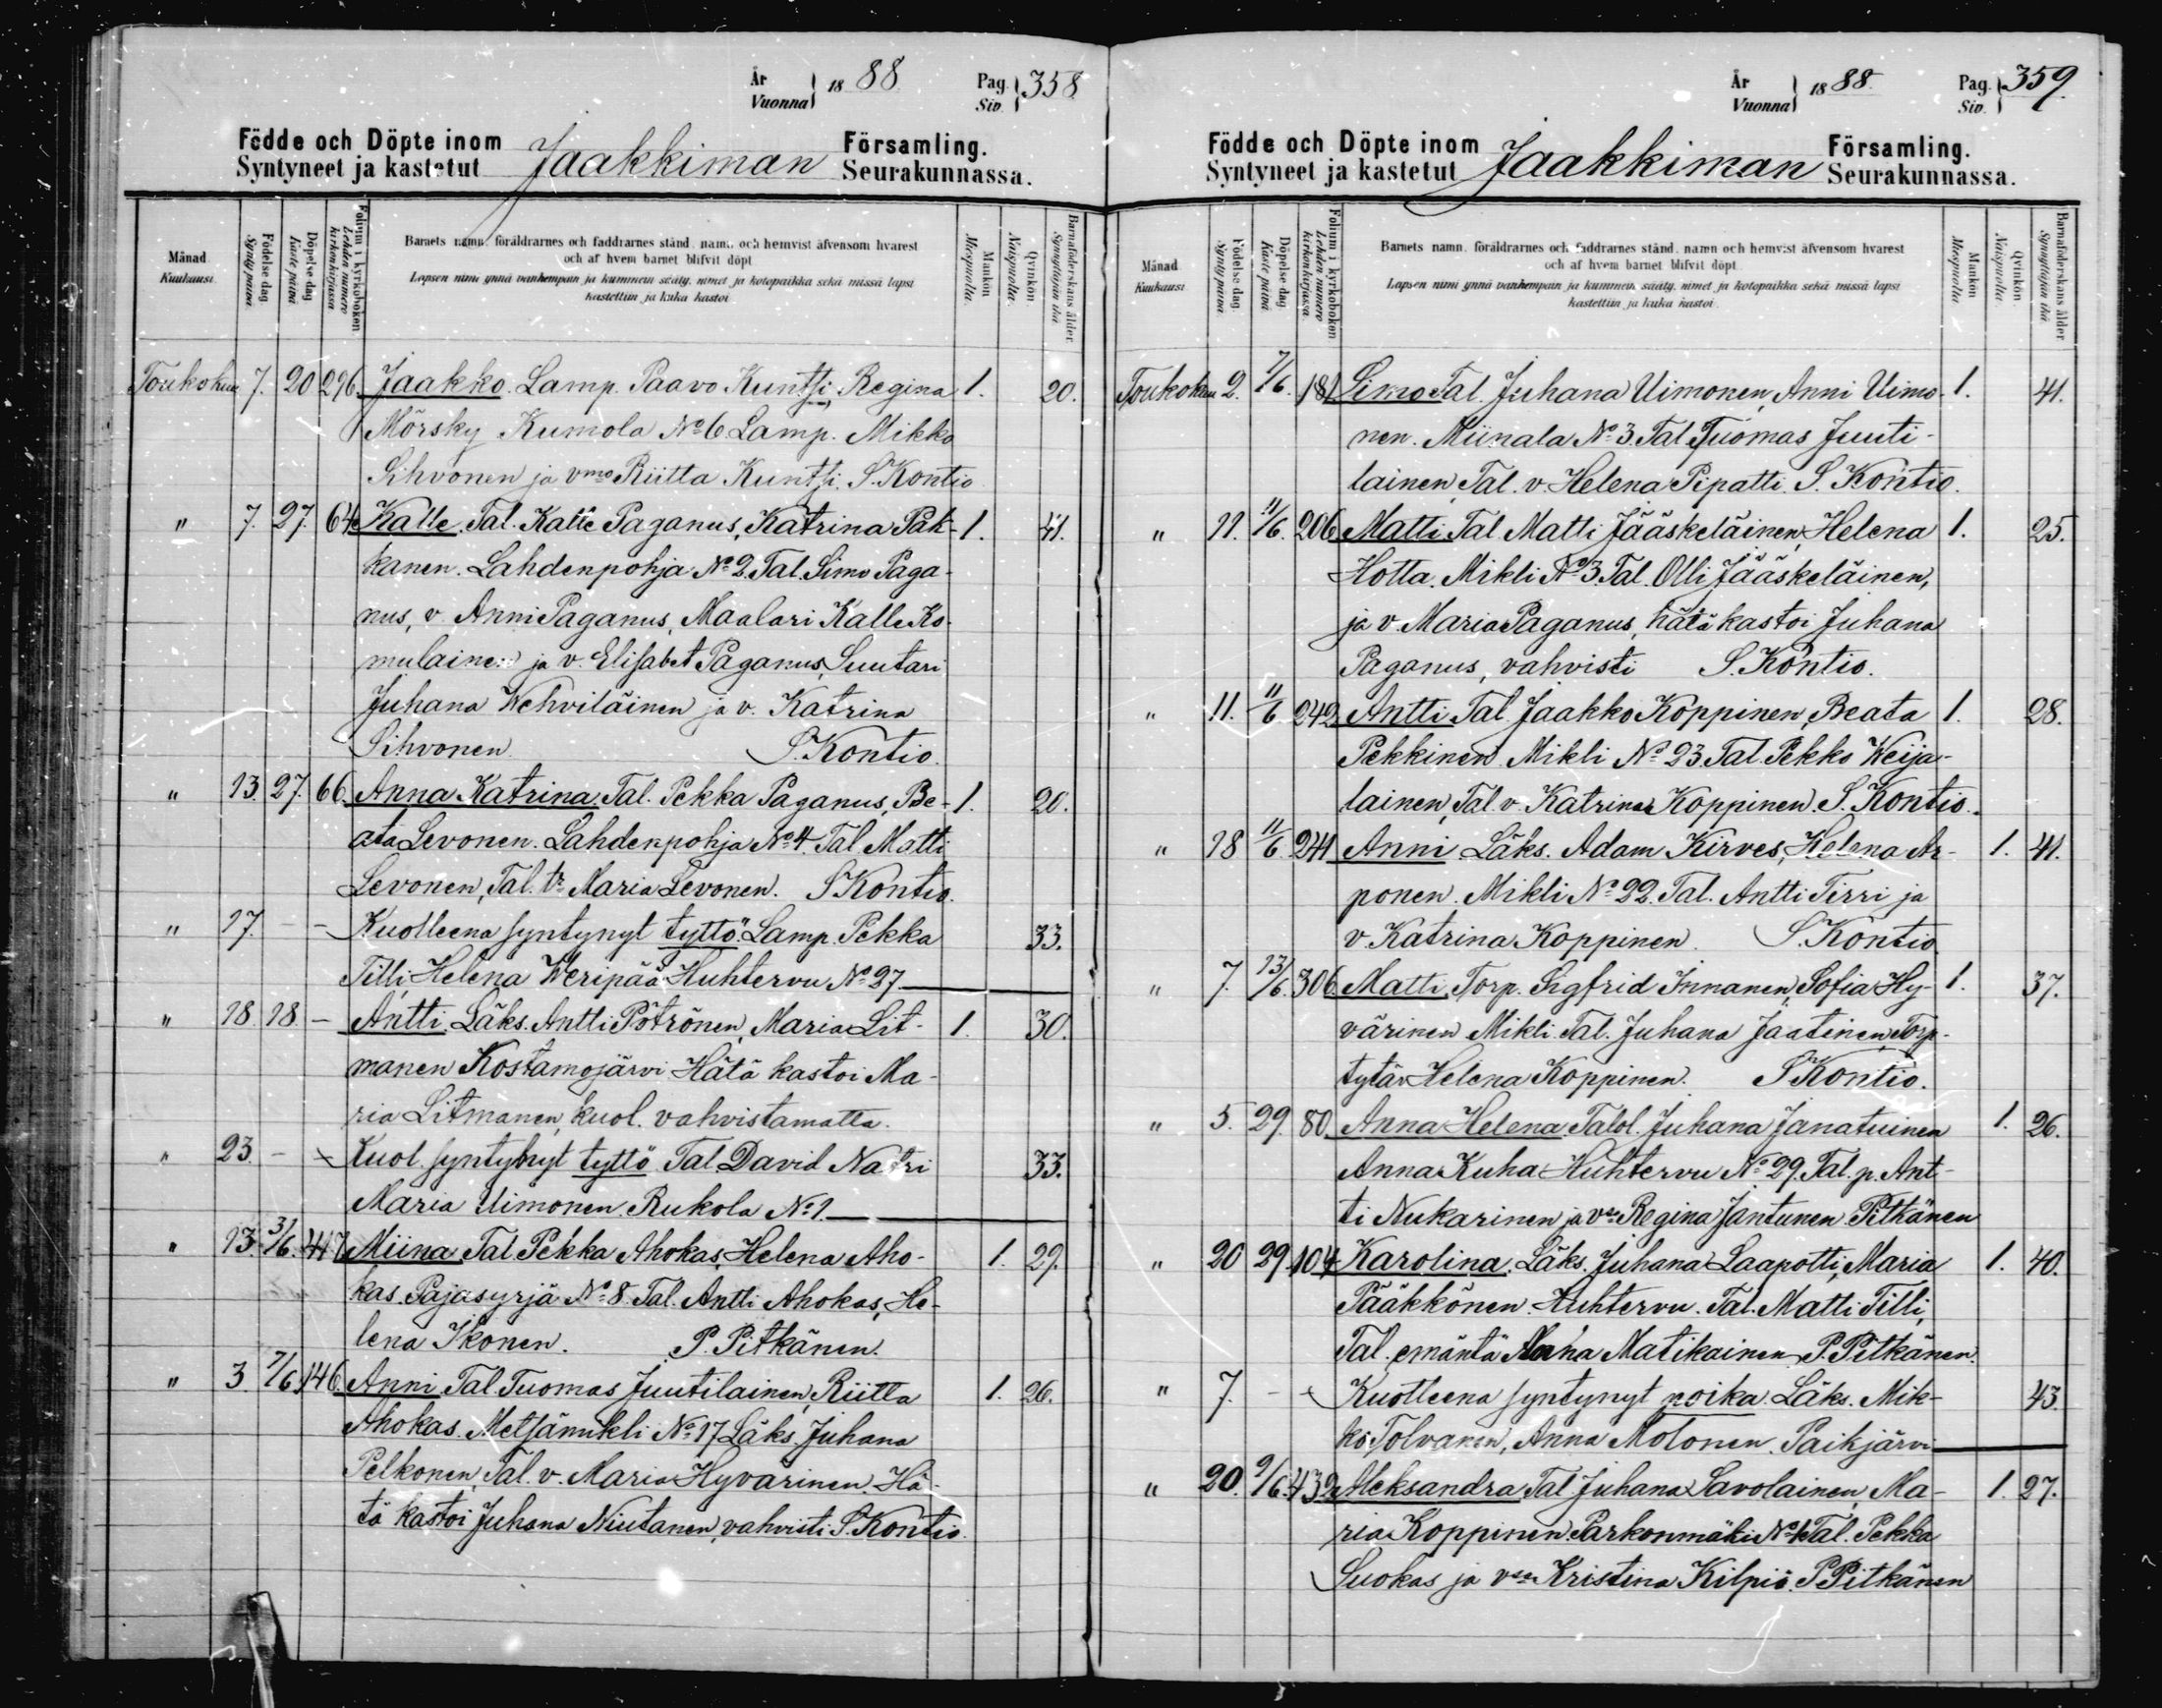 År Vuonna 1888 Pag. Siv. 358
Födde och Döpte inom Jaakkiman Församling.
Syntyneet ja kastetut Seurakunnassa.
Månad Kuukausi
Födelse dag Synty päivä
Döpelse dag Kaste päivä
Folium i kyrkoboken Lehden numero kirkonkirjassa
Barnets namn, föräldrarnes och faddrarnes stånd, namn och hemvist äfvensom hvarest
och af hvem barnet blifvit döpt
Lapsen nimi ynnä vanhempain ja kummein sääty, nimet ja kotopaikka sekä missä lapsi
kastettiin ja kuka kastoi
Mankön Miespuolta
Qvinkön Naispuolta
Barnaföderskans ålder Synnyttäjän ikä
Toukokuu 7. 20 296 Jaakko. Lamp. Paavo Kuntsi, Regina 1. 20.
Mörsky Kumola No 6 Lamp. Mikko
Sihvonen ja vmo Riitta Kuntsi. S. Kontio
" 7. 27. 64 Kalle. Tal. Kalle Paganus, Katrina Pak- 1. 41.
kanen. Lahdenpohja No 2. Tal. Simo Paga-
nus, v. Anni Paganus, Maalari Kalle Ko-
mulainen ja v. Elisabet Paganus, Suutari
Juhana Wehviläinen ja v. Katrina
Sihvonen S. Kontio.
" 13. 27. 66. Anna Katrina. Tal. Pekka Paganus, Be- 1. 20.
ata Levonen. Lahdenpohja No 4. Tal. Matti
Levonen, Tal. tr Maria Levonen. S. Kontio.
" 17. - - Kuolleena syntynyt tyttö. Lamp. Pekka 33.
Tilli, Helena Weripää Huhtervu No 27
" 18. 18. - Antti. Läks. Antti Pötrönen, Maria Lit- 1. 30.
manen Kostamojärvi Hätä kastoi Ma-
ria Litmanen, kuol. vahvistamatta.
" 23. - - Kuol. syntynyt tyttö Tal. David Natri 33.
Maria Uimonen. Rukola No 1.
" 13. 3/6. 417 Miina Tal. Pekka Ahokas, Helena Aho- 1. 29.
kas. Pajasyrjä No 8. Tal. Antti Ahokas, He-
lena Ikonen. P. Pitkänen.
" 3. 7/6. 146. Anni Tal. Tuomas Juutilainen, Riitta 1. 26.
Ahokas. Metsämikli No 17 Läks. Juhana
Pelkonen, Tal. v. Maria Hyvärinen. Hä-
tä kastoi Juhana Niutanen, vahvisti S. Kontio.
År Vuonna 1888 Pag. Siv. 359.
Födde och Döpte inom Jaakkiman Församling.
Syntyneet ja kastetut Seurakunnassa.
Månad Kuukausi
Födelse dag Synty päivä
Döpelse dag Kaste päivä
Folium i kyrkoboken Lehden numero kirkonkirjassa
Barnets namn, föräldrarnes och faddrarnes stånd, namn och hemvist äfvensom hvarest
och af hvem barnet blifvit döpt
Lapsen nimi ynnä vanhempain ja kummein sääty, nimet ja kotopaikka sekä missä lapsi
kastettiin ja kuka kastoi
Mankön Miespuolta
Qvinkön Naispuolta
Barnaföderskans ålder Synnyttäjän ikä
Toukokuu 2. 7/6. 181 Simo Tal. Juhana Uimonen, Anni Uimo- 1. 41.
nen. Miinala No 3. Tal. Tuomas Juuti-
lainen, Tal. v. Helena Pipatti. S. Kontio.
" 11. 11/6. 206 Matti Tal. Matti Jääskeläinen, Helena 1. 25.
Hotta. Mikli No 3. Tal. Olli Jääskeläinen,
ja v. Maria Paganus, hätä kastoi Juhana
Paganus, vahvisti S. Kontio.
" 11. 11/6 242 Antti Tal. Jaakko Koppinen, Beata 1. 28.
Pekkinen Mikli No 23. Tal. Pekko Weija-
lainen, Tal. v. Katrina Koppinen. S. Kontio.
" 18 11/6. 241 Anni Läks. Adam Kirves, Helena Ar- 1. 41.
ponen. Mikli No 22. Tal. Antti Tirri ja
v. Katrina Koppinen. S. Kontio
" 7. 13/6. 306 Matti. Torp. Sigfrid Innanen, Sofia Hy- 1. 37.
värinen Mikli. Tal. Juhana Jaatinen, Torp.
tytär Helena Koppinen. S. Kontio.
" 5. 29. 80. Anna Helena. Talol. Juhana Janatuinen 1. 26.
Anna Kuha Huhtervu No 29. Tal. p. Ant-
ti Nukarinen ja Regina Jantunen Pitkänen
" 20 29 104 Karolina. Läks. Juhana Laapotti, Maria 1. 40.
Pääkkönen. Huhtervu. Tal. Matti Tilli,
Tal. emäntä Anna Matikainen P. Pitkänen.
" 7. - - Kuolleena syntynyt poika. Läks. Mik- 43.
ko Tolvanen, Anna Molonen. Paikjärvi
" 20. 9/6. 432 Aleksandra Tal. Juhana Savolainen, Ma- 1. 27.
ria Koppinen. Parkonmäki No 1 Tal. Pekka
Suokas ja Kristina Kilpiö. P. Pitkänen